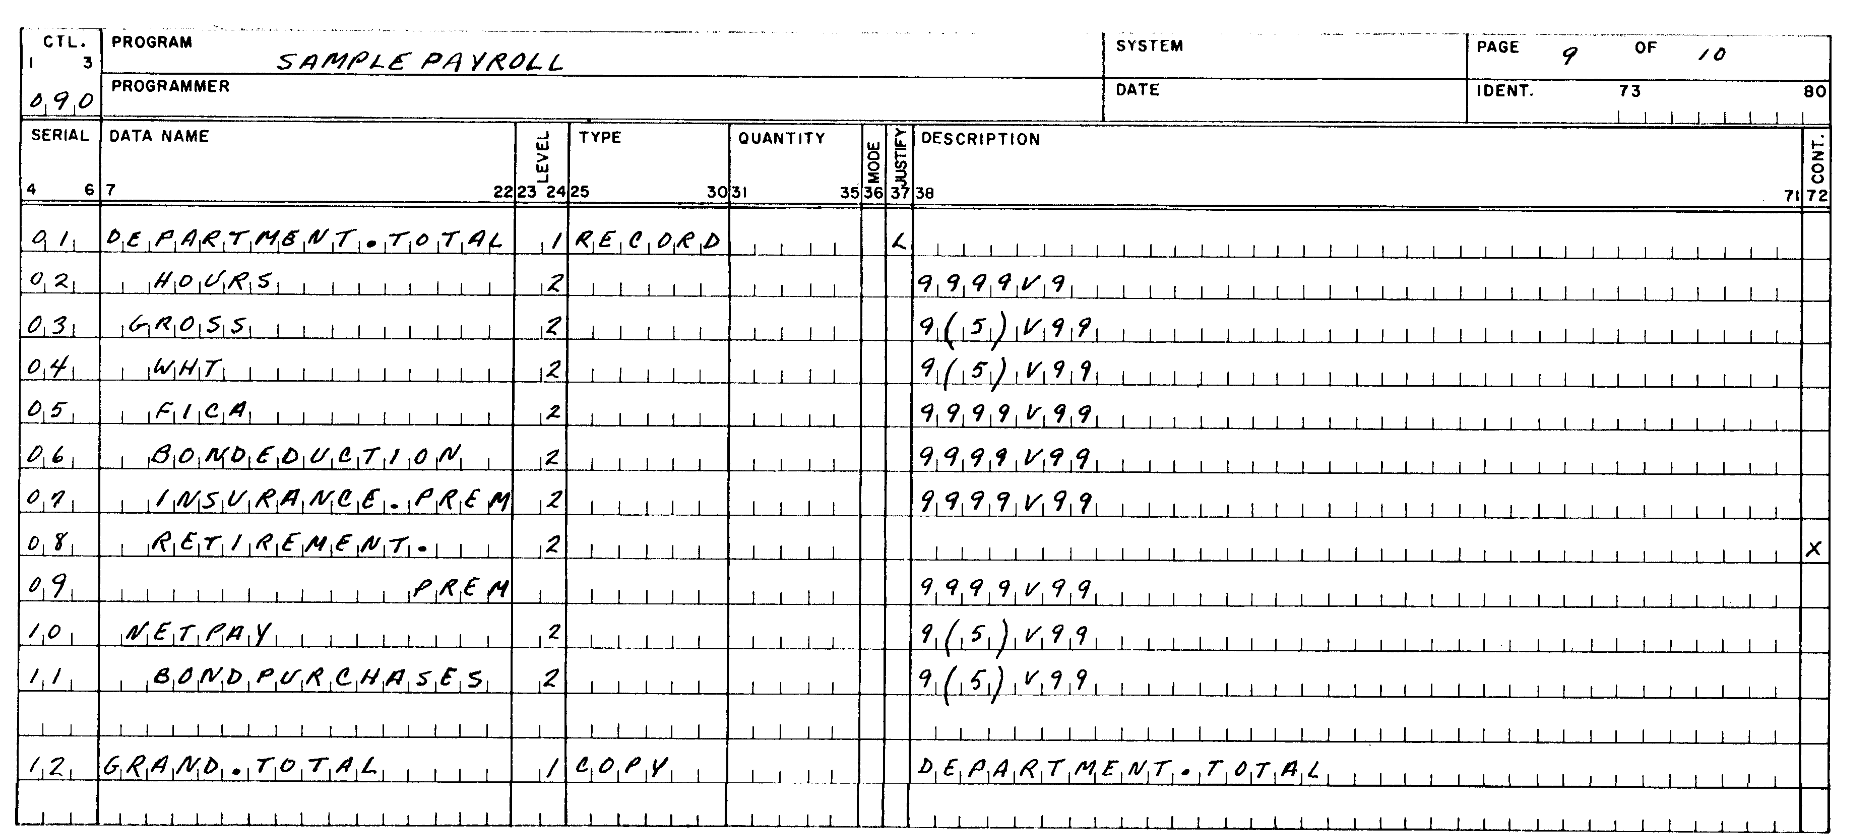 CTL. PROGRAM SAMPLE PAYROLL SYSTEM PAGE 9 OF 10
1 3
090 PROGRAMMER DATE IDENT. 73 80
SERIAL DATA NAME LEVEL TYPE QUANTITY MODE JUSTIFY DESCRIPTION CONT.
4 6 7 22 23 24 25 30 31 35 36 37 38 71 72
01 DEPARTMENT.TOTAL 1 RECORD L
02 HOURS 2 9999V9
03 GROSS 2 9(5)V99
04 WHT 2 9(5)V99
05 FICA 2 9999V99
06 BONDEDUCTION 2 9999V99
07 INSURANCE.PREM 2 9999V99
08 RETIREMENT. 2 X
09 PREM 9999V99
10 NETPAY 2 9(5)V99
11 BONDPURCHASES 2 9(5)V99
12 GRAND.TOTAL 1 COPY DEPARTMENT.TOTAL